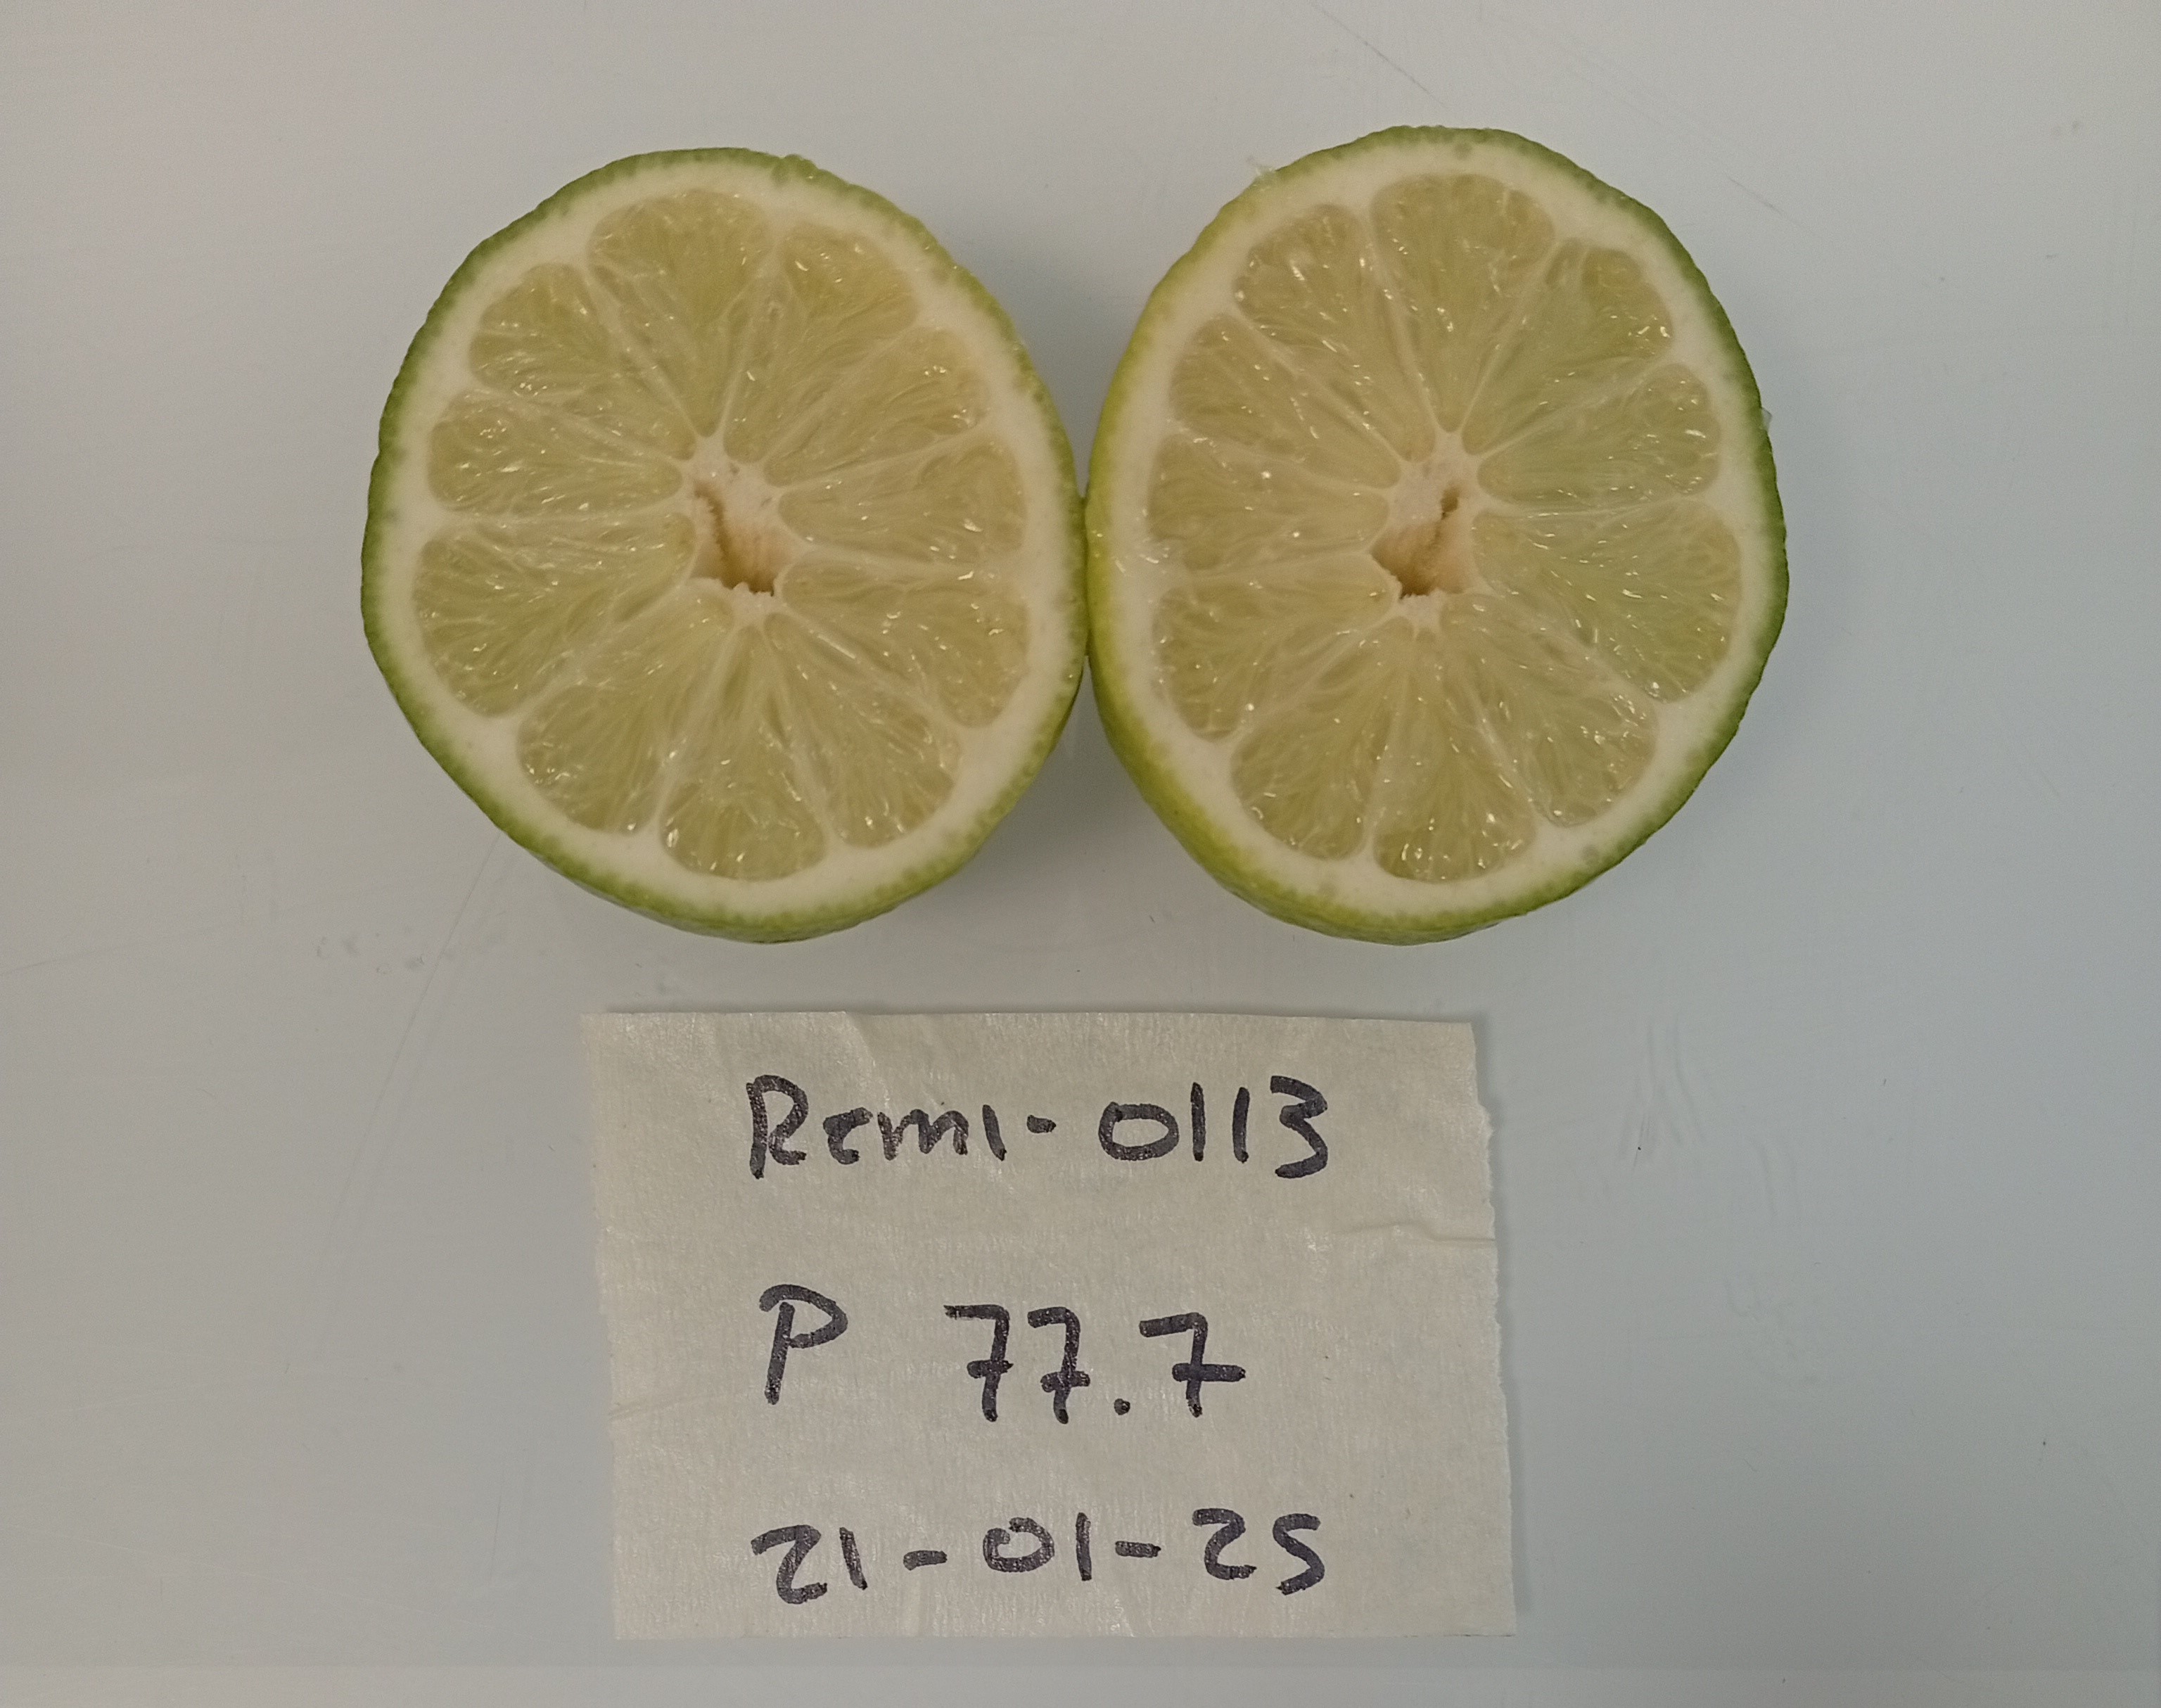 Remi-0113
P 77.7
21-01-25